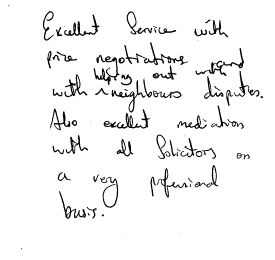 Excellent Service with
price negotiations and
helping out with
with neighbours disputes.
Also excellent mediation
with all Solicitors on
a very professional
basis.